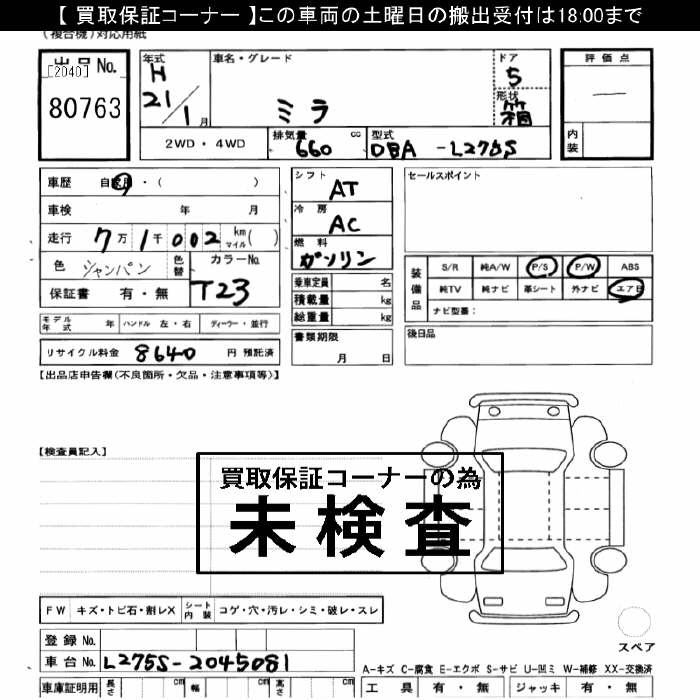 【 買取保証コーナー 】この車両の土曜日の搬出受付は18:00まで
(複合機)対応用紙
出品No.
[2040]
80763
年式
H
21/1月
車名・グレード
ミラ
ドア
5
形状
箱
評価点
—
内装
2WD・4WD
排気量
660
cc
型式
DBA -L275S
車歴 自家用・( )
車検 年 月
走行 7万1千002 km マイル( )
色 シャンパン
色替
カラーNo.
T23
保証書 有・無
シフト
AT
冷房
AC
燃料
ガソリン
乗車定員 名
積載量 kg
総重量 kg
セールスポイント
装備品
S/R 純A/W P/S P/W ABS
純TV 純ナビ 革シート 外ナビ エアB
ナビ型番:
モデル年式 年 ハンドル 左・右 ディーラー・並行
書類期限
月 日
後日品
リサイクル料金 8640 円 預託済
【出品店申告欄(不良箇所・欠品・注意事項等)】
【検査員記入】
買取保証コーナーの為
未検査
FW キズ・トビ石・割レX シート内装 コゲ・穴・汚レ・シミ・破レ・スレ
スペア
登録No.
車台No. L275S-2045081
A-キズ C-腐食 E-エクボ S-サビ U-凹ミ W-補修 XX-交換済
車庫証明用 長さ cm 幅 cm 高さ cm
工具 有・無 ジャッキ 有・無